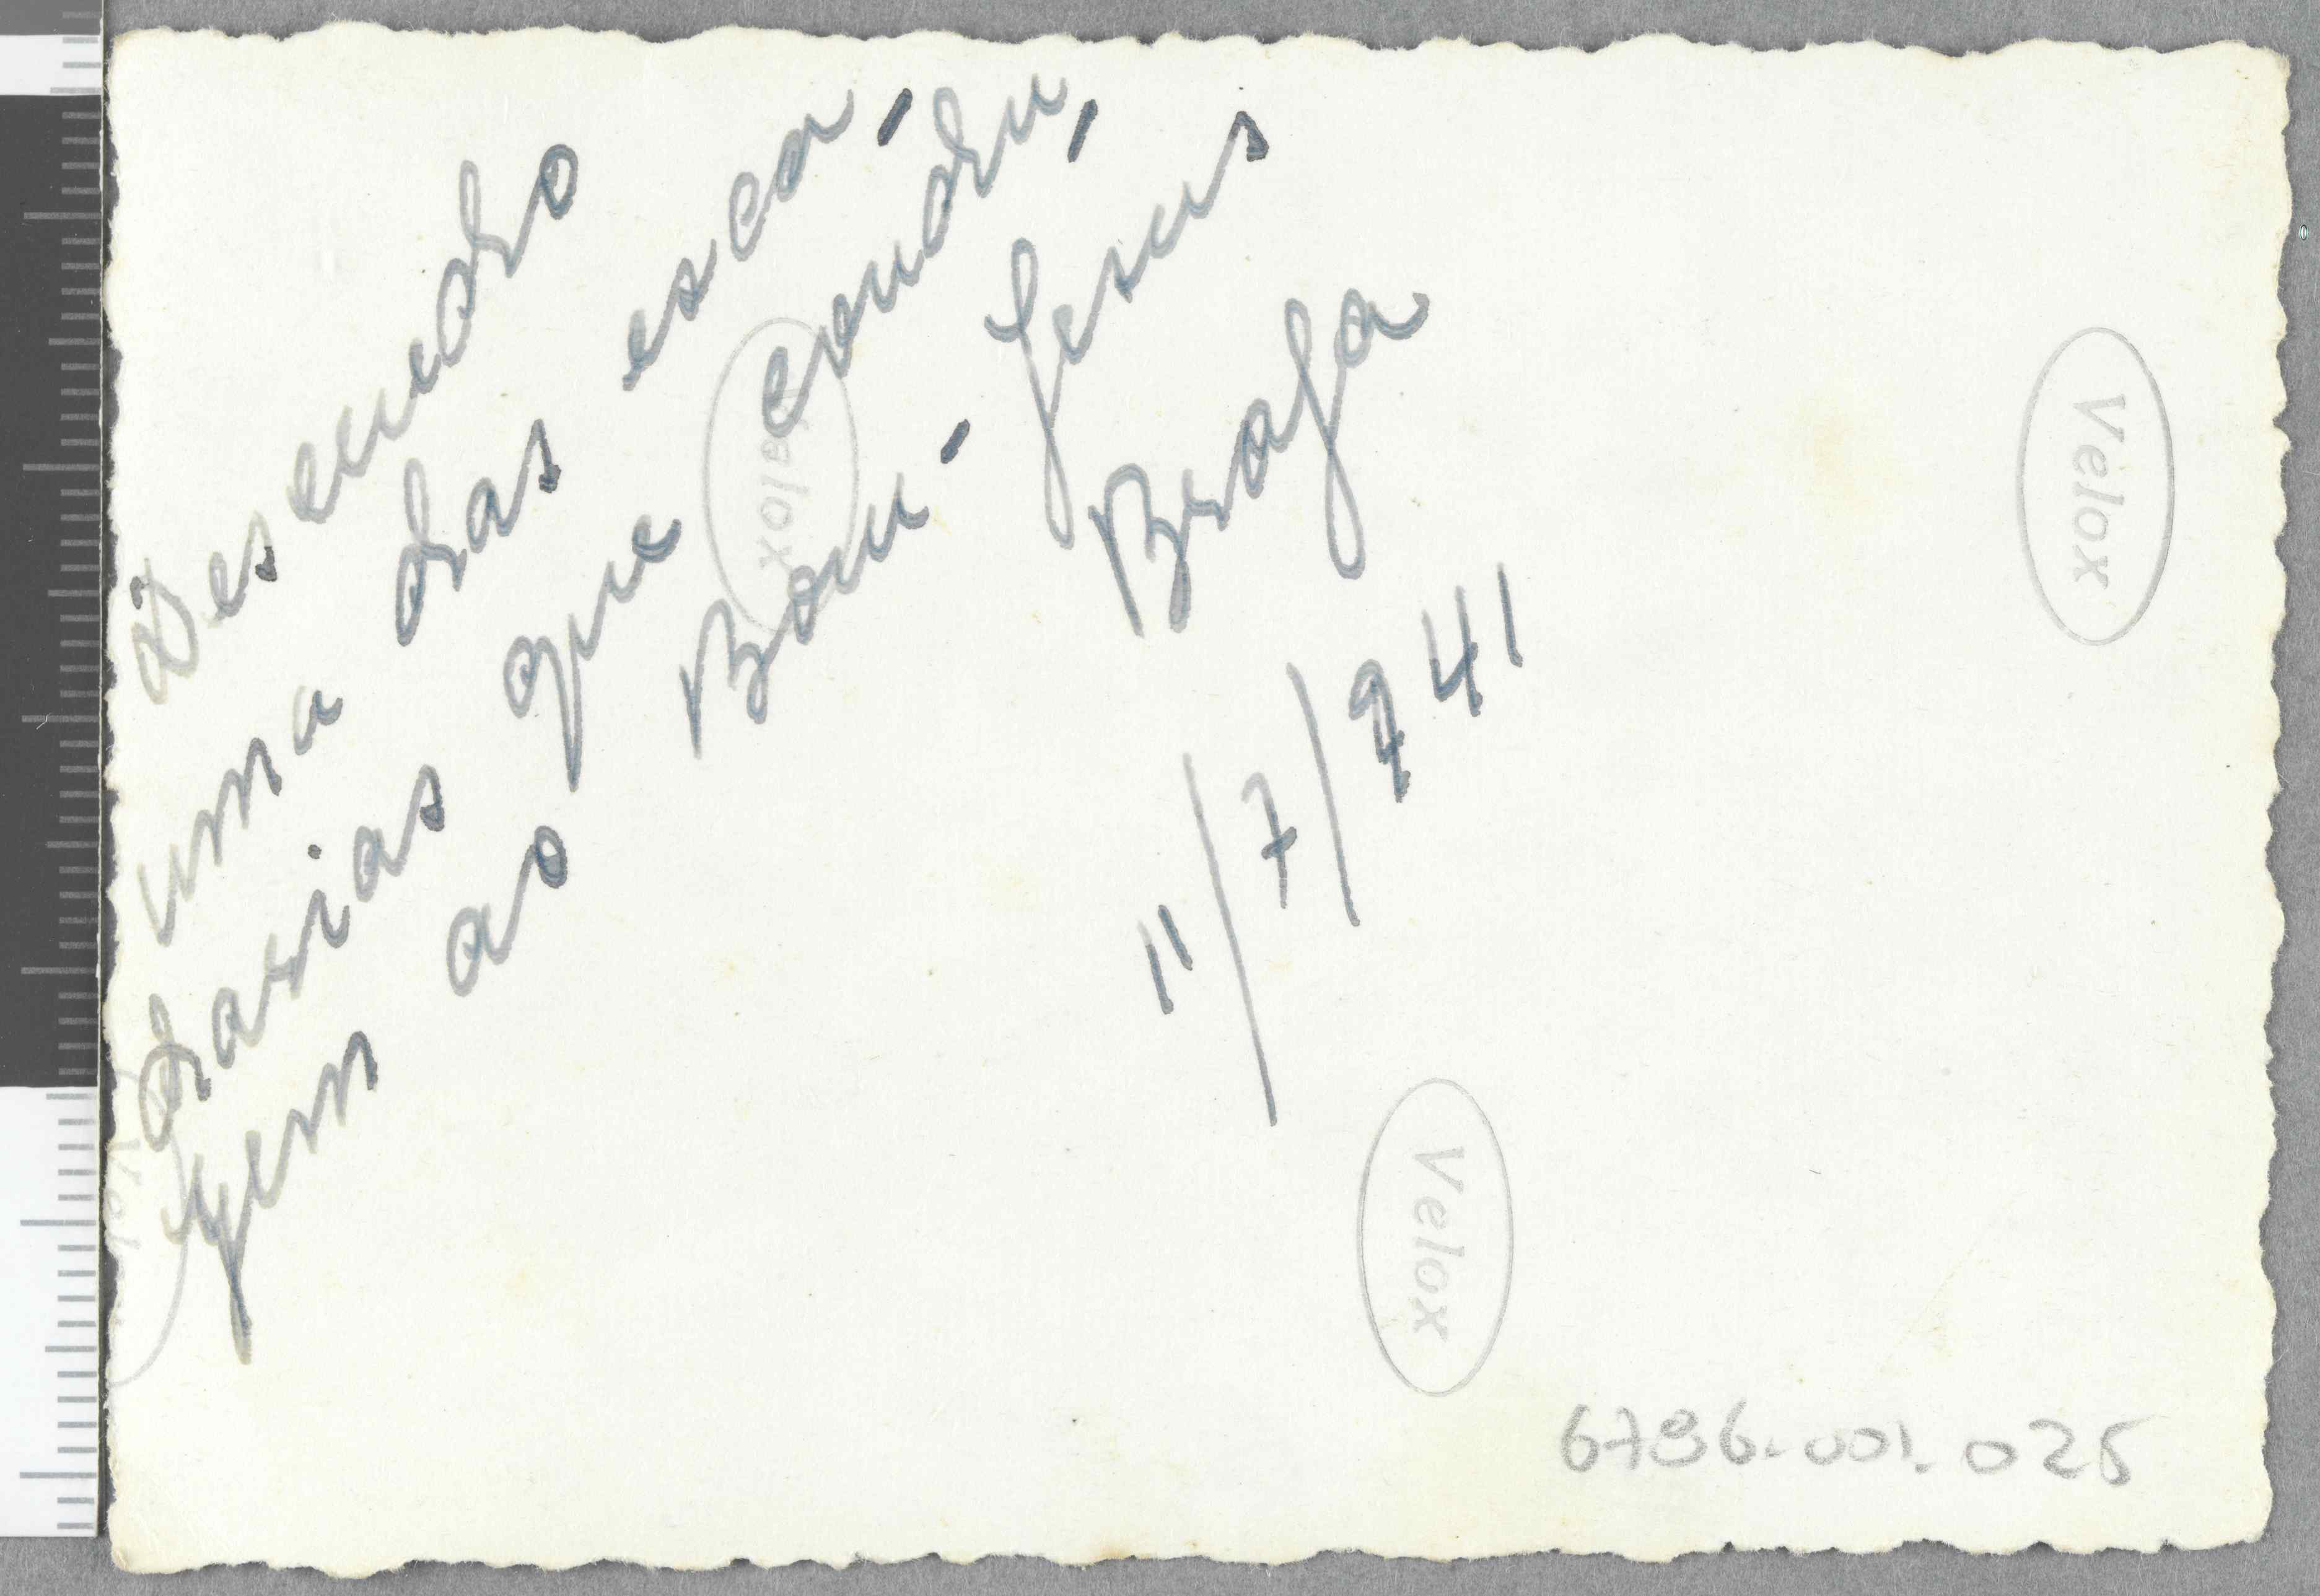 Descendo
uma das esca-
darias que condu-
zem ao Bom-Jesus
Braga
11/7/941
Velox
Velox
Velox
6796.001.025